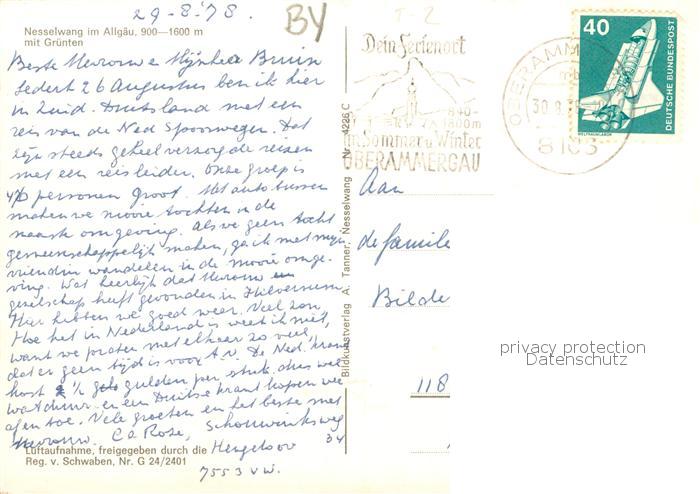 29-8-'78.
BY
T-2
Nesselwang im Allgäu, 900—1600 m
mit Grünten
Beste Mevrouw en Mijnheer Bruin
Sedert 26 Augustus ben ik hier
in Zuid-Duitsland met een
reis van de Ned Spoorwegen. Dat
zijn steeds geheel verzorgde reizen
met een reisleider. Onze groep is
40 personen groot. Met auto bussen
maken we mooie tochten in de
naaste omgeving. Als we geen tocht
gemeenschappelijk maken, ga ik met mijn
vriendin wandelen in de mooie omge-
ving. Wat heerlijk dat Mevrouw een
gezelschap heeft gevonden in Hilversum
Hier hebben we goed weer. Veel zon
Hoe het in Nederland is weet ik niet,
want we praten met elkaar zo veel,
dat er geen tijd is voor t.v. De Ned. krant
kost 2 1/2 gulden per stuk. dus wel
wat duur. en een Duitse krant kopen we
af en toe. Vele groeten en het beste met
Mevrouw. C de Rose, Schouwinksweg
34
Hengelo ov
7553 VW.
Luftaufnahme, freigegeben durch die
Reg. v. Schwaben, Nr. G 24/2401
Bildkunstverlag A. Tanner, Nesselwang Nr. 4226 C
Dein Ferienort
840-
1800m
im Sommer u Winter
OBERAMMERGAU
OBERAMM
30.8.
8103
40
DEUTSCHE BUNDESPOST
WELTRAUMLABOR
Aan
de familie
Bilde
118
privacy protection
Datenschutz